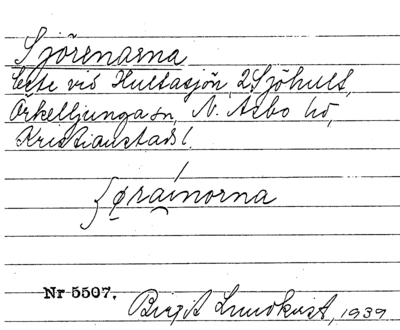 Sjörenarna
bete vid Hultasjön, 2 Sjöhult,
Örkelljunga sn, N. Åsbo hd,
Kristianstads l.
Nr 5507.
Birgit Lundkvist, 1939